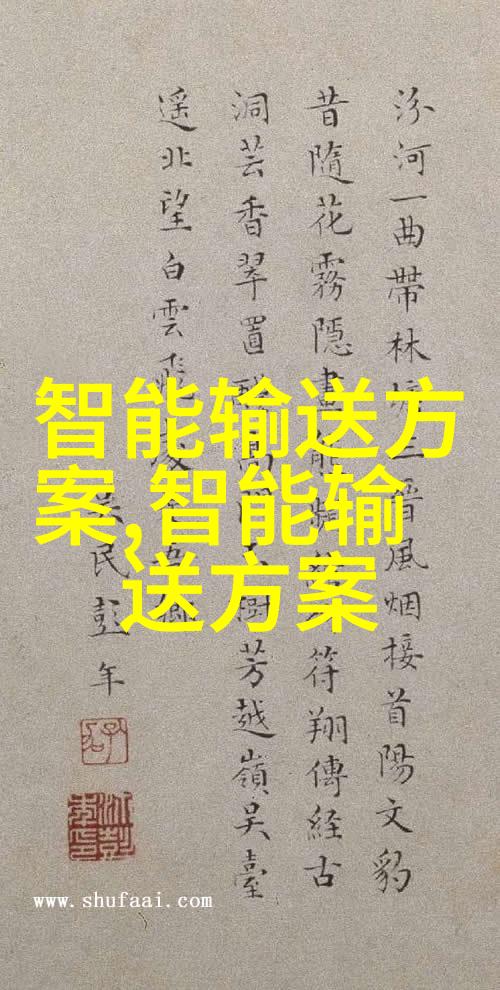 汾河一曲帶林塘三晉風烟接首陽文豹
昔隨花霧隱畫符翔傳經古
洞芸香翠置樹芳越嶺吳臺
遥北望白雲飛
吳民彭年
智能输送方
案,智能输
送方案
www.shufaai.com